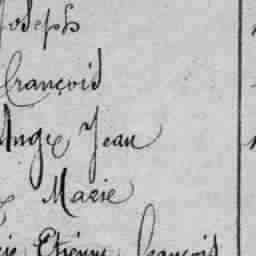 Joseph
François
Ange Jean
Marie
Etienne François